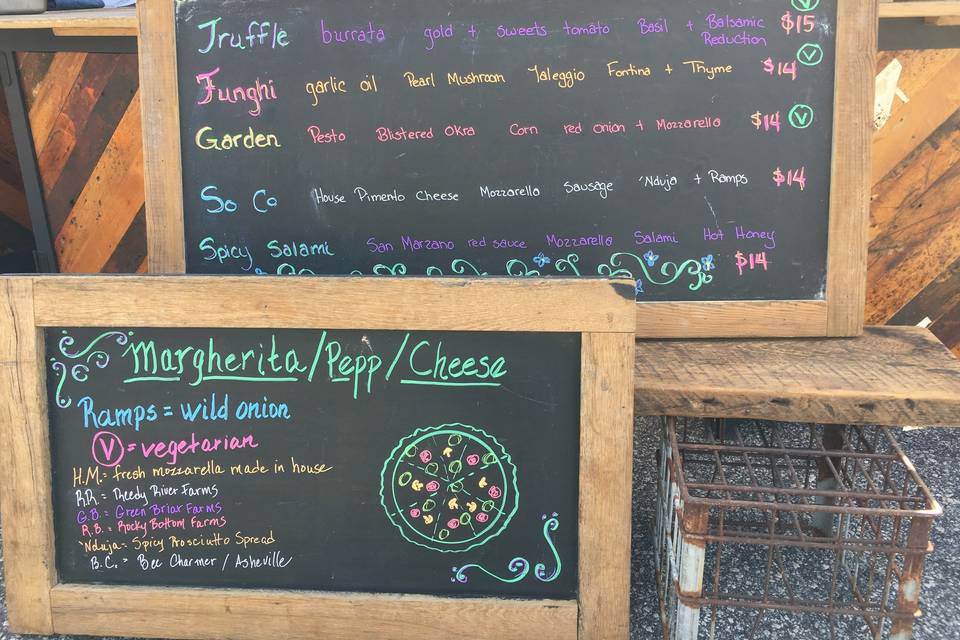 Truffle burrata gold + sweets tomato Basil + Balsamic Reduction $15 V
Funghi garlic oil Pearl Mushroom Taleggio Fontina + Thyme $14 V
Garden Pesto Blistered Okra Corn red onion + Mozzarella $14 V
So Co House Pimento Cheese Mozzarella Sausage 'Nduja + Ramps $14
Spicy Salami San Marzano red sauce Mozzarella Salami Hot Honey $14
Margherita/Pepp/Cheese
Ramps = wild onion
V = vegetarian
H.M. = fresh mozzarella made in house
R.R. = Reedy River Farms
G.B. = Green Briar Farms
R.B. = Rocky Bottom Farms
'Nduja = Spicy Prosciutto Spread
B.C. = Bee Charmer / Asheville